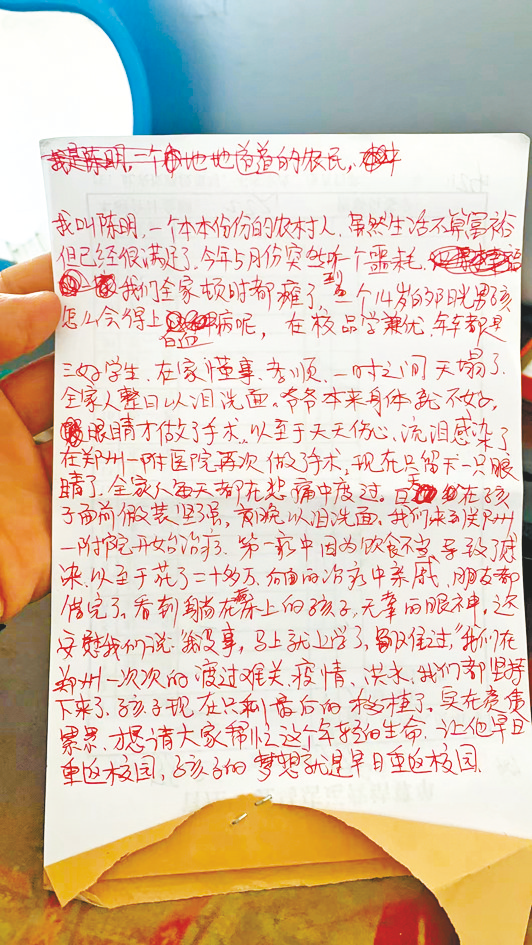 我是陈明，一个地地道道的农民，
我叫陈明，一个本本份份的农村人，虽然生活不算富裕
但已经很满足了，今年5月份突然听一个噩耗，
我们全家顿时都瘫了，一个14岁的阳光男孩
怎么会得上白血病呢，在校品学兼优，年年都是
三好学生，在家懂事、孝顺，一时之间天塌了。
全家人整日以泪洗面，爷爷本来身体就不好，
眼睛才做了手术，以至于天天伤心、流泪感染了
在郑州一附医院再次做了手术，现在只留下一只眼
睛了，全家人每天都在悲痛中度过。白天在孩
子面前假装坚强，夜晚以泪洗面，我们来到郑州
一附院开始治疗、第一疗中因为饮食不当导致了感
染，以至于花了二十多万，后面的治疗中亲戚、朋友都
借完了，看到躺在床上的孩子，无辜的眼神，还
安慰我们说"我没事，马上就上学了，""我们在
郑州一次次的渡过难关，疫情、洪水，我们都坚持
下来了，孩子现在只剩最后的移植了，实在是债
累累，才想请大家帮忙这个年轻的生命，让他早日
重返校园，孩子的梦想就是早日重返校园.